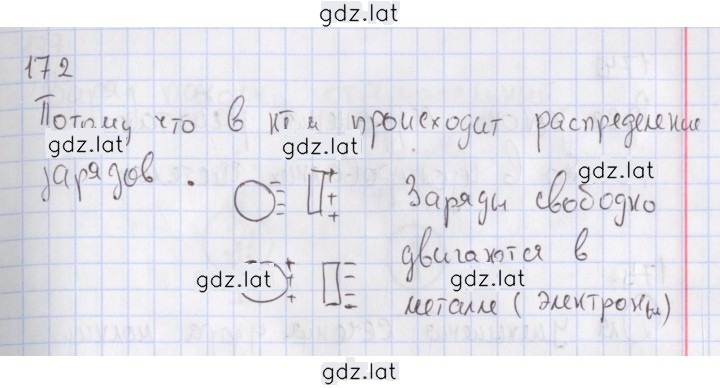 gdz.lat
172
Потому что в кти происходит распределение
gdz.lat gdz.lat
зарядов. Заряды свободно
gdz.lat
двигаются в
gdz.lat gdz.lat
металле (электроны)
gdz.lat